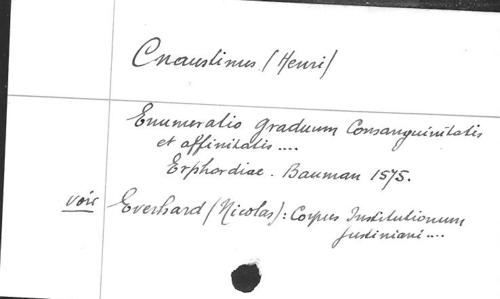 Cnaustinus (Henri)
Enumeratio graduum Consanguinitatis
et affinitatis ....
Erphordiae. Bauman 1575.
voir Everhard (Nicolas): Corpus Institutionum
Justiniani ....